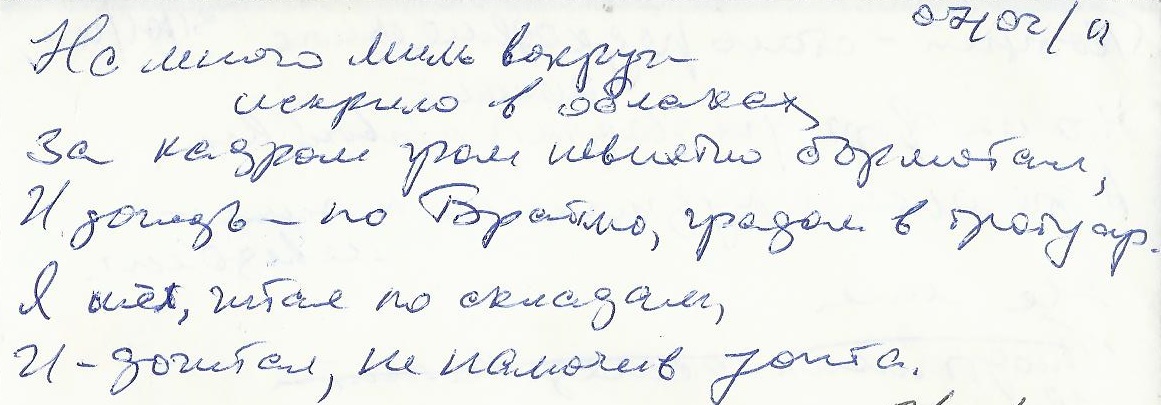 07/02/11
На много миль вокруг
искрило в облаках,
За кадром гром невнятно бормотал,
И дождь – по Брайлю, градом в тротуар.
Я шёл, читая по складам,
И – дочитал, не намочив зонта.